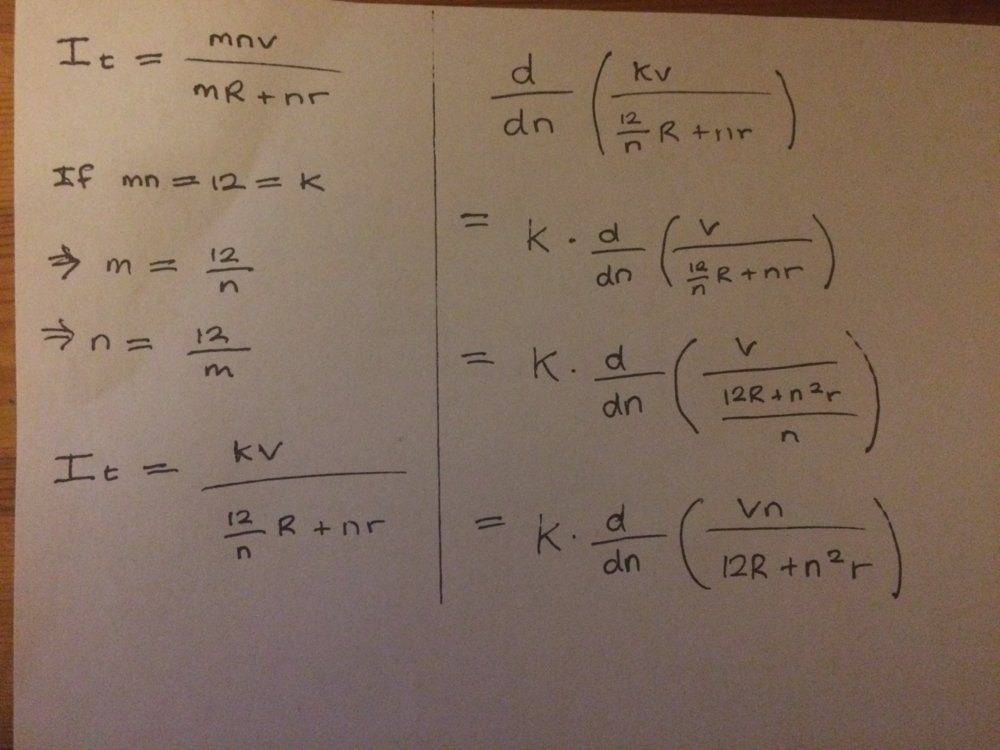 I_t = mnv / (mR + nr)
If mn = 12 = K
⇒ m = 12/n
⇒ n = 12/m
I_t = KV / (12/n R + nr)
d/dn ( KV / (12/n R + nr) )
= K · d/dn ( V / (12/n R + nr) )
= K · d/dn ( V / ((12R + n²r) / n) )
= K · d/dn ( Vn / (12R + n²r) )